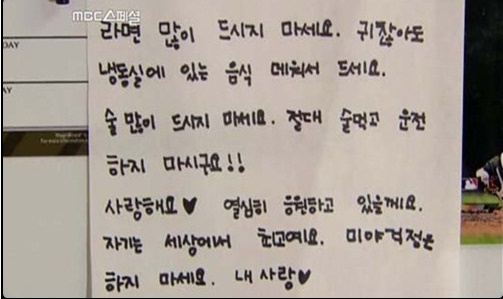 MBC스페셜
DAY
AY
라면 많이 드시지 마세요. 귀찮아도
냉동실에 있는 음식 데워서 드세요.
술 많이 드시지 마세요. 절대 술먹고 운전
하지 마시구요!!
사랑해요♥ 열심히 응원하고 있을께요.
자기는 세상에서 최고예요. 미야걱정은
하지 마세요. 내 사랑♥